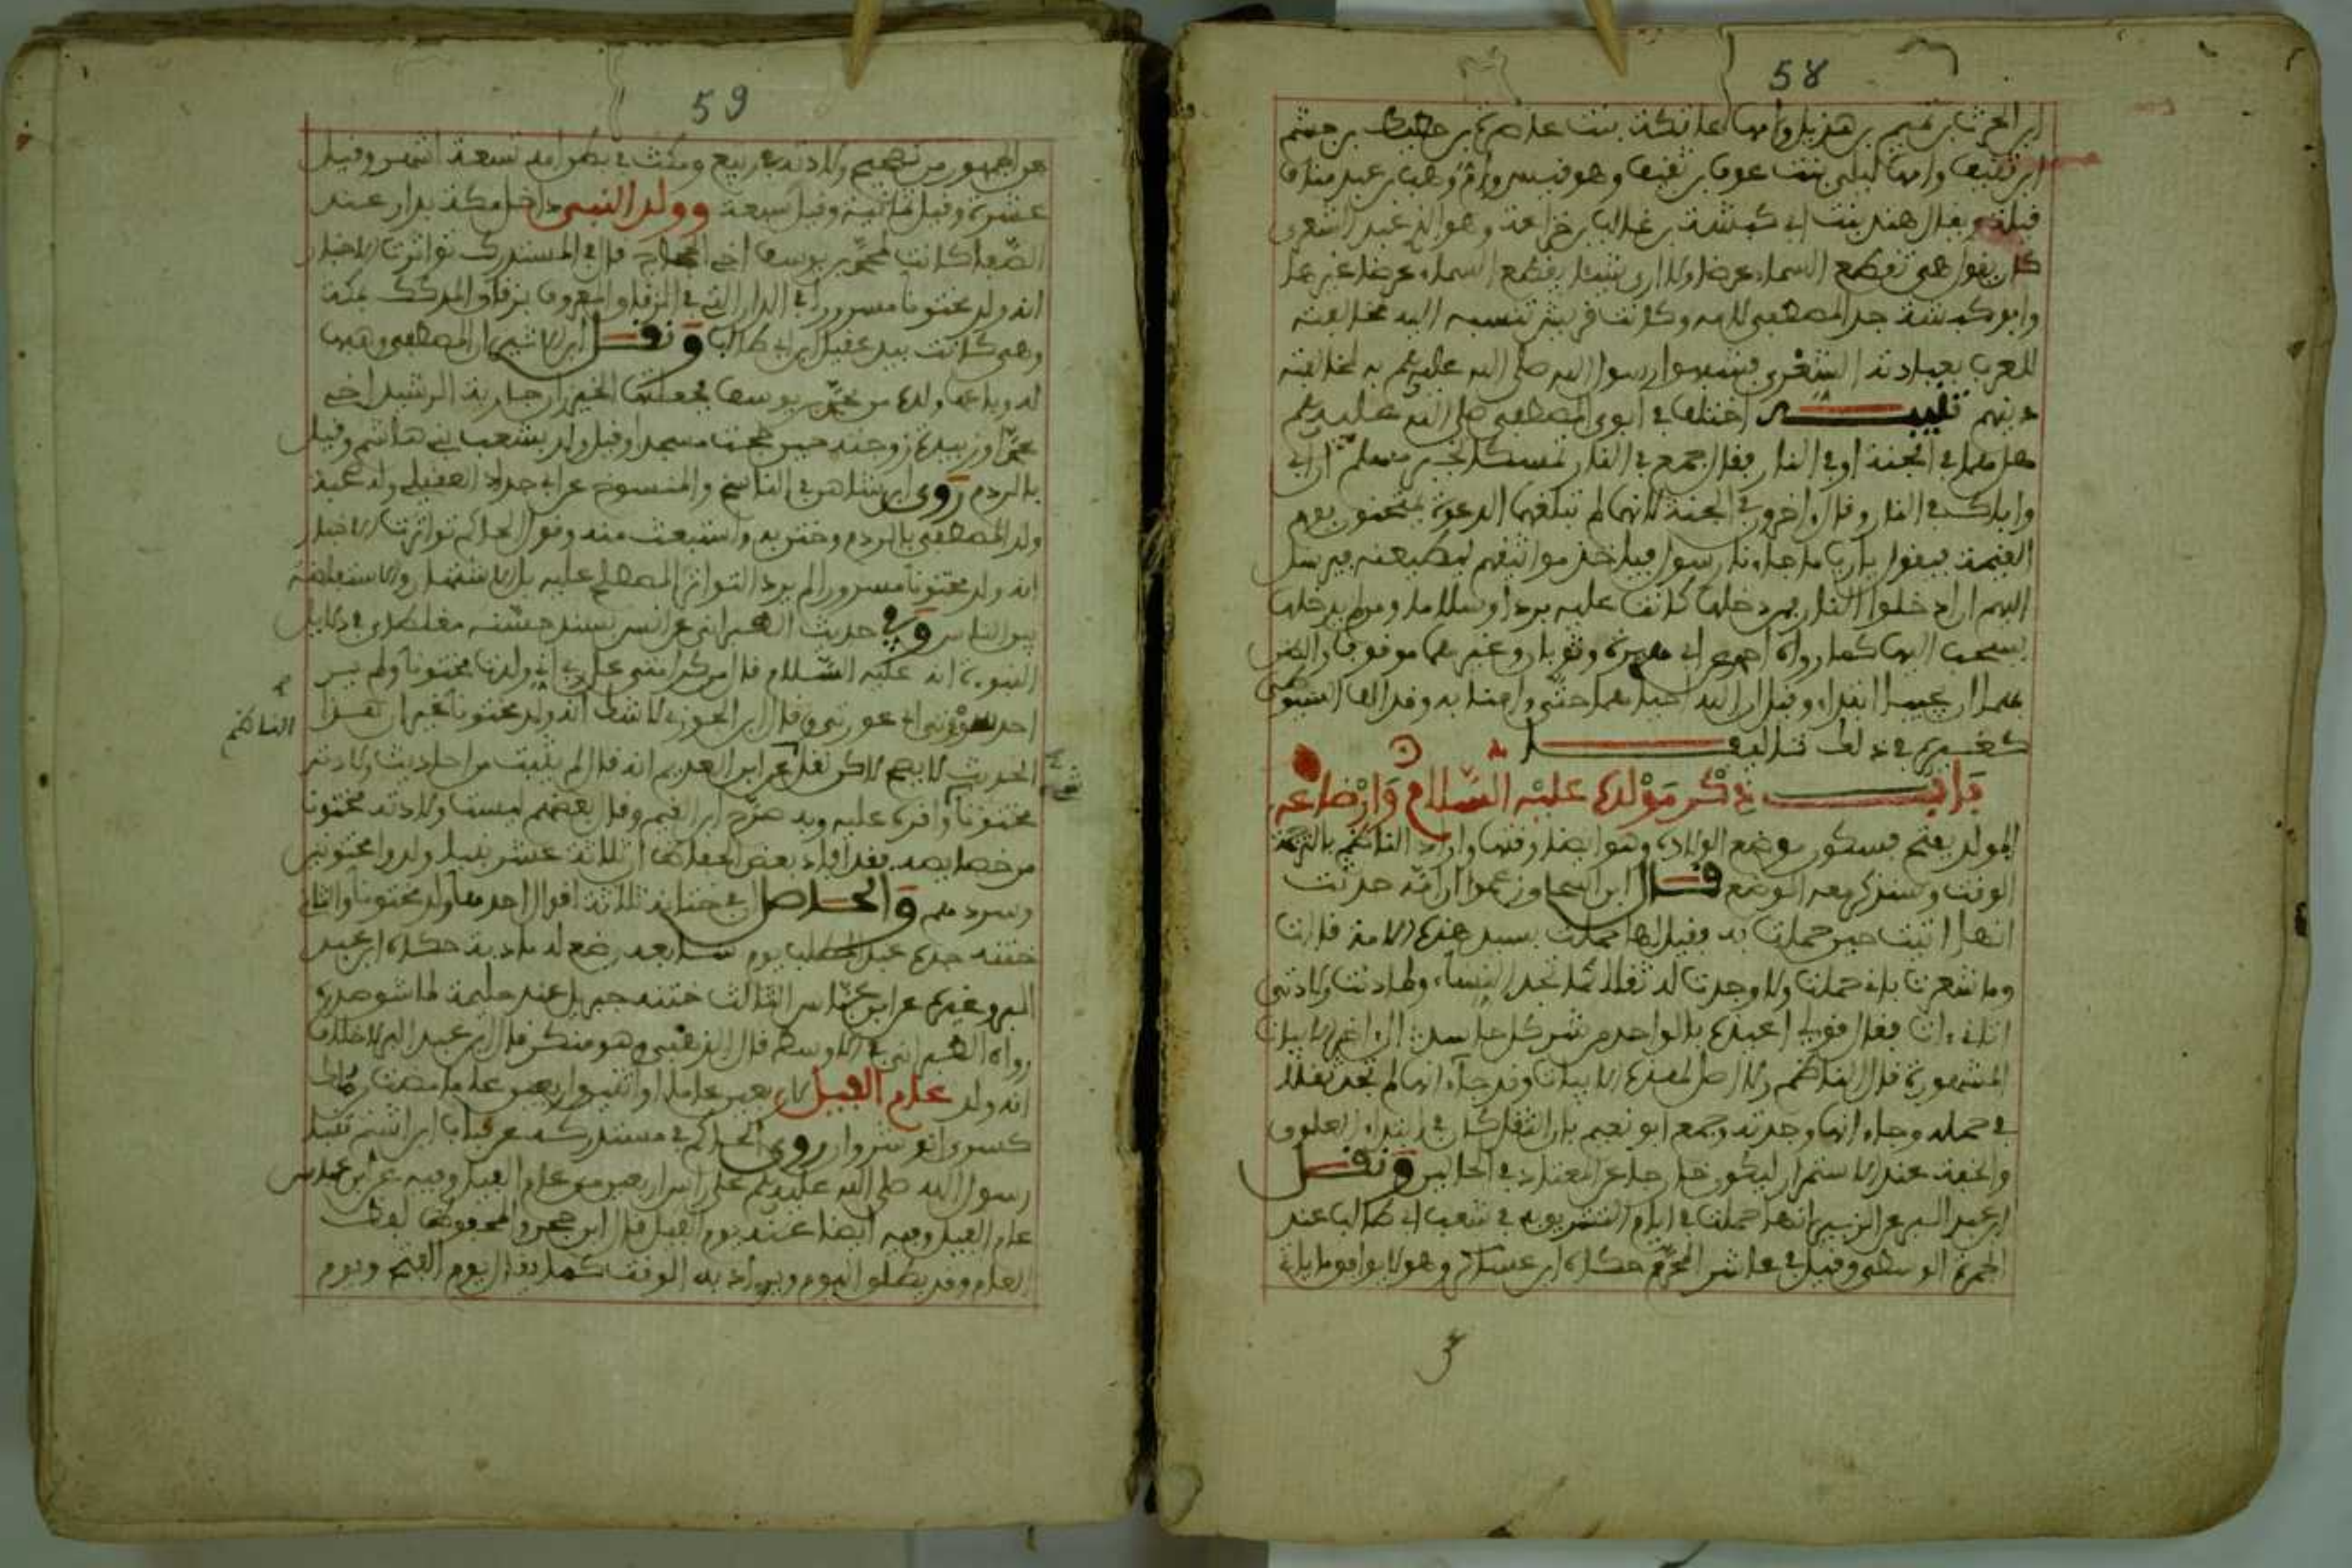 58
ابن الحرث بن تميم بن هذيل وامها عاتكة بنت غاضرة بن حطيط بن جشم
ابن ثقيف وامها ليلى بنت عوف بن ثقيف وهو قيس وأم وهب بن عبد مناف
قيلة ويقال هند بنت ابي كبشة بن غالب بن خزاعة وهو الذي عبد الشعرى
كان يقول هي تقطع السماء عرضا ولا ارى شيئا يقطع السماء عرضا غيرها
وابو كبشة جد المصطفى لامه وكانت قريش تنسبه اليه لمخالفته
للعرب بعبادته الشعرى فنسبوا رسول الله صلى الله عليه وسلم به لمخالفته
دينهم تنبيه اختلف في ابوي المصطفى صلى الله عليه وسلم
هل هما في الجنة او في النار فقال جمع في النار تمسكا بخبر مسلم ان ابي
واباك في النار وقال ءاخرون في الجنة لانهما لم تبلغهما الدعوة يمتحنون يوم
القيمة فيقول يا رب ما جاءنا رسول فياخذ مواثيقهم ليطيعنه فيرسل
اليهم ان ادخلوا النار فمن دخلها كانت عليه بردا وسلاما ومن لم يدخلها
يسحب اليها كما رواه احمد عن ابي هريرة وثوبان وغيرهما موقوفا والبعض
وقيل ان الله احياهما حتى ءامنا به وقد الف السيوطي
كغيره في ذلك تئاليف
باب ذكر مولده عليه السلام وارضاعه
المولد بفتح فسكون موضع الولادة وهو ايضا وقتها واراد الناظم بالترجمة
الوقت وسنذكر معه الوضع قال ابن اسحاق زعموا ان امه حدثت
انها اتيت حين حملت به وقيل لها حملت بسيد هذه الامة قالت
وما شعرت باني حملت ولا وجدت له ثقلا كما تجد النساء ولما دنت ولادتي
اتاني ءات فقال قولي اعيذه بالواحد من شر كل حاسد الى اخر الابيات
المشهورة قال الناظم ولا اصل لهذه الابيات وقد جاء انها لم تجد ثقلا
في حمله وجاء انها وجدته وجمع ابو نعيم بان الثقل كان في ابتداء العلوق
والخفة عند الاستمرار ليكون خارجا عن المعتاد في الحالين ونقل
ابن عبد البر عن الزبير انها حملت في ايام التشريق في شعب ابي طالب عند
الجمرة الوسطى وقيل في عاشر المحرم حكاه ابن عساكر وهو لا يوافق ما يلي
59
عن الجمهور من تصحيح ولادته في ربيع ومكث في بطن امه تسعة اشهر وقيل
عشرة وقيل ثمانية وقيل سبعة وولد النبي داخل مكة بدار عند
الصفا كانت لمحمد بن يوسف اخي الحجاج قال في المستدرك تواترت الاخبار
انه ولد مختونا مسرورا في الدار التي في الزقاق المعروف بزقاق المدكك بمكة
وهي كانت بيد عقيل ابن ابي طالب ونقل ابن الاثير ان المصطفى وهبها
له وباعها ولده من محمد بن يوسف فجعلتها الخيزران جارية الرشيد اخي
محمد او زبيدة زوجته حين حجت مسجدا وقيل ولد بشعب بني هاشم وقيل
بالردم روى ابن شاهين في الناسخ والمنسوخ عن ابي حداد العقيلي
ولد المصطفى بالردم وختن به واستبعث منه وقول الحاكم تواترت الاخبار
انه ولد مختونا مسرورا لم يرد التواتر المصطلح عليه بل الاشتهار والاستفاضة
بين الناس وفي حديث الطبراني عن انس بسند حسنه مغلطاي في دلايل
النبوة انه عليه السلام قال من كرامتي على ربي اني ولدت مختونا ولم ير
احد سوءتي اي عورتي وقال ابن الجوزي لا شك انه ولد مختونا غير ان هذا
الحديث لا يصح لاكن نقل عن ابن العديم انه قال لم يثبت من احاديث ولادته
مختونا واقره عليه وبه صرح ابن القيم وقال بعضهم ليست ولادته مختونا
من خصايصه فقد افاد بعض الحفاظ ان ثلاثة عشر نبيا ولدوا مختونين
وسردهم والحاصل في ختانه ثلاثة اقوال احدها ولد مختونا والثاني
ختنه جده عبد المطلب يوم سابعه وضع له مادبة حكاه ابن عبد
البر وغيره عن ابن عباس الثالث ختنه جبريل عند حليمة لما شق صدره
رواه الطبراني في الاوسط قال الذهبي وهو منكر قال ابن عبد البر لا خلاف
انه ولد عام الفيل لاربعين عاما او اثنين واربعين عاما مضت من ملك
كسرى انوشروان روى الحاكم في مستدركه عن قباث ابن اشيم تنبأ
رسول الله صلى الله عليه وسلم على راس اربعين من عام الفيل وفيه عن ابن عباس
عام الفيل وفيه ايضا عنه يوم الفيل قال ابن حجر والمحفوظ لفظ
العام وقد يطلق اليوم ويراد به الوقت كما يقال يوم الفتح ويوم
الناظم